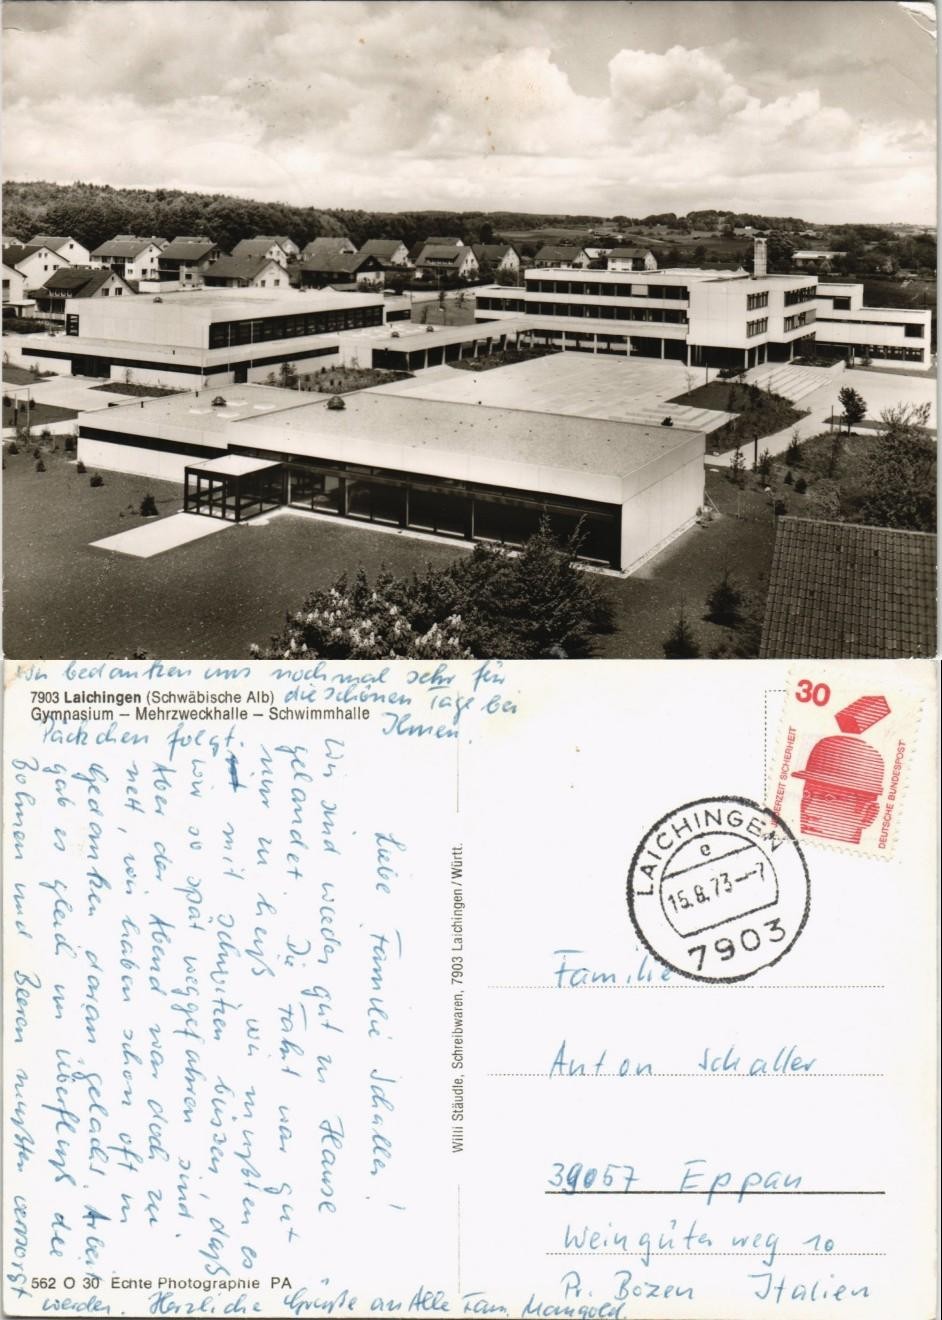 7903 Laichingen (Schwäbische Alb)
Gymnasium – Mehrzweckhalle – Schwimmhalle
Liebe Familie Schaller!
Wir sind wieder gut zu Hause
gelandet. Die Fahrt war gut
nur zu heiß wir mußten es
mit Schwitzen büssen, daß
wir so spät weggefahren sind.
Aber der Abend war doch zu
nett, wir haben schon oft in
Gedanken daran gelacht. Arbeit
gab es gleich im Überfluß die
Bohnen und Beeren mußten versorgt
werden. Herzliche Grüße an Alle Fam. Mangold.
Wir bedanken uns nochmal sehr für
die schönen Tage bei
Ihnen.
Päckchen folgt.
Willi Stäudle, Schreibwaren, 7903 Laichingen/Württ.
562 O 30 Echte Photographie PA
30
JEDERZEIT SICHERHEIT
DEUTSCHE BUNDESPOST
LAICHINGEN
e
15.8.73–7
7903
Familie
Anton Schaller
39057 Eppan
Weingüterweg 10
Pr. Bozen Italien